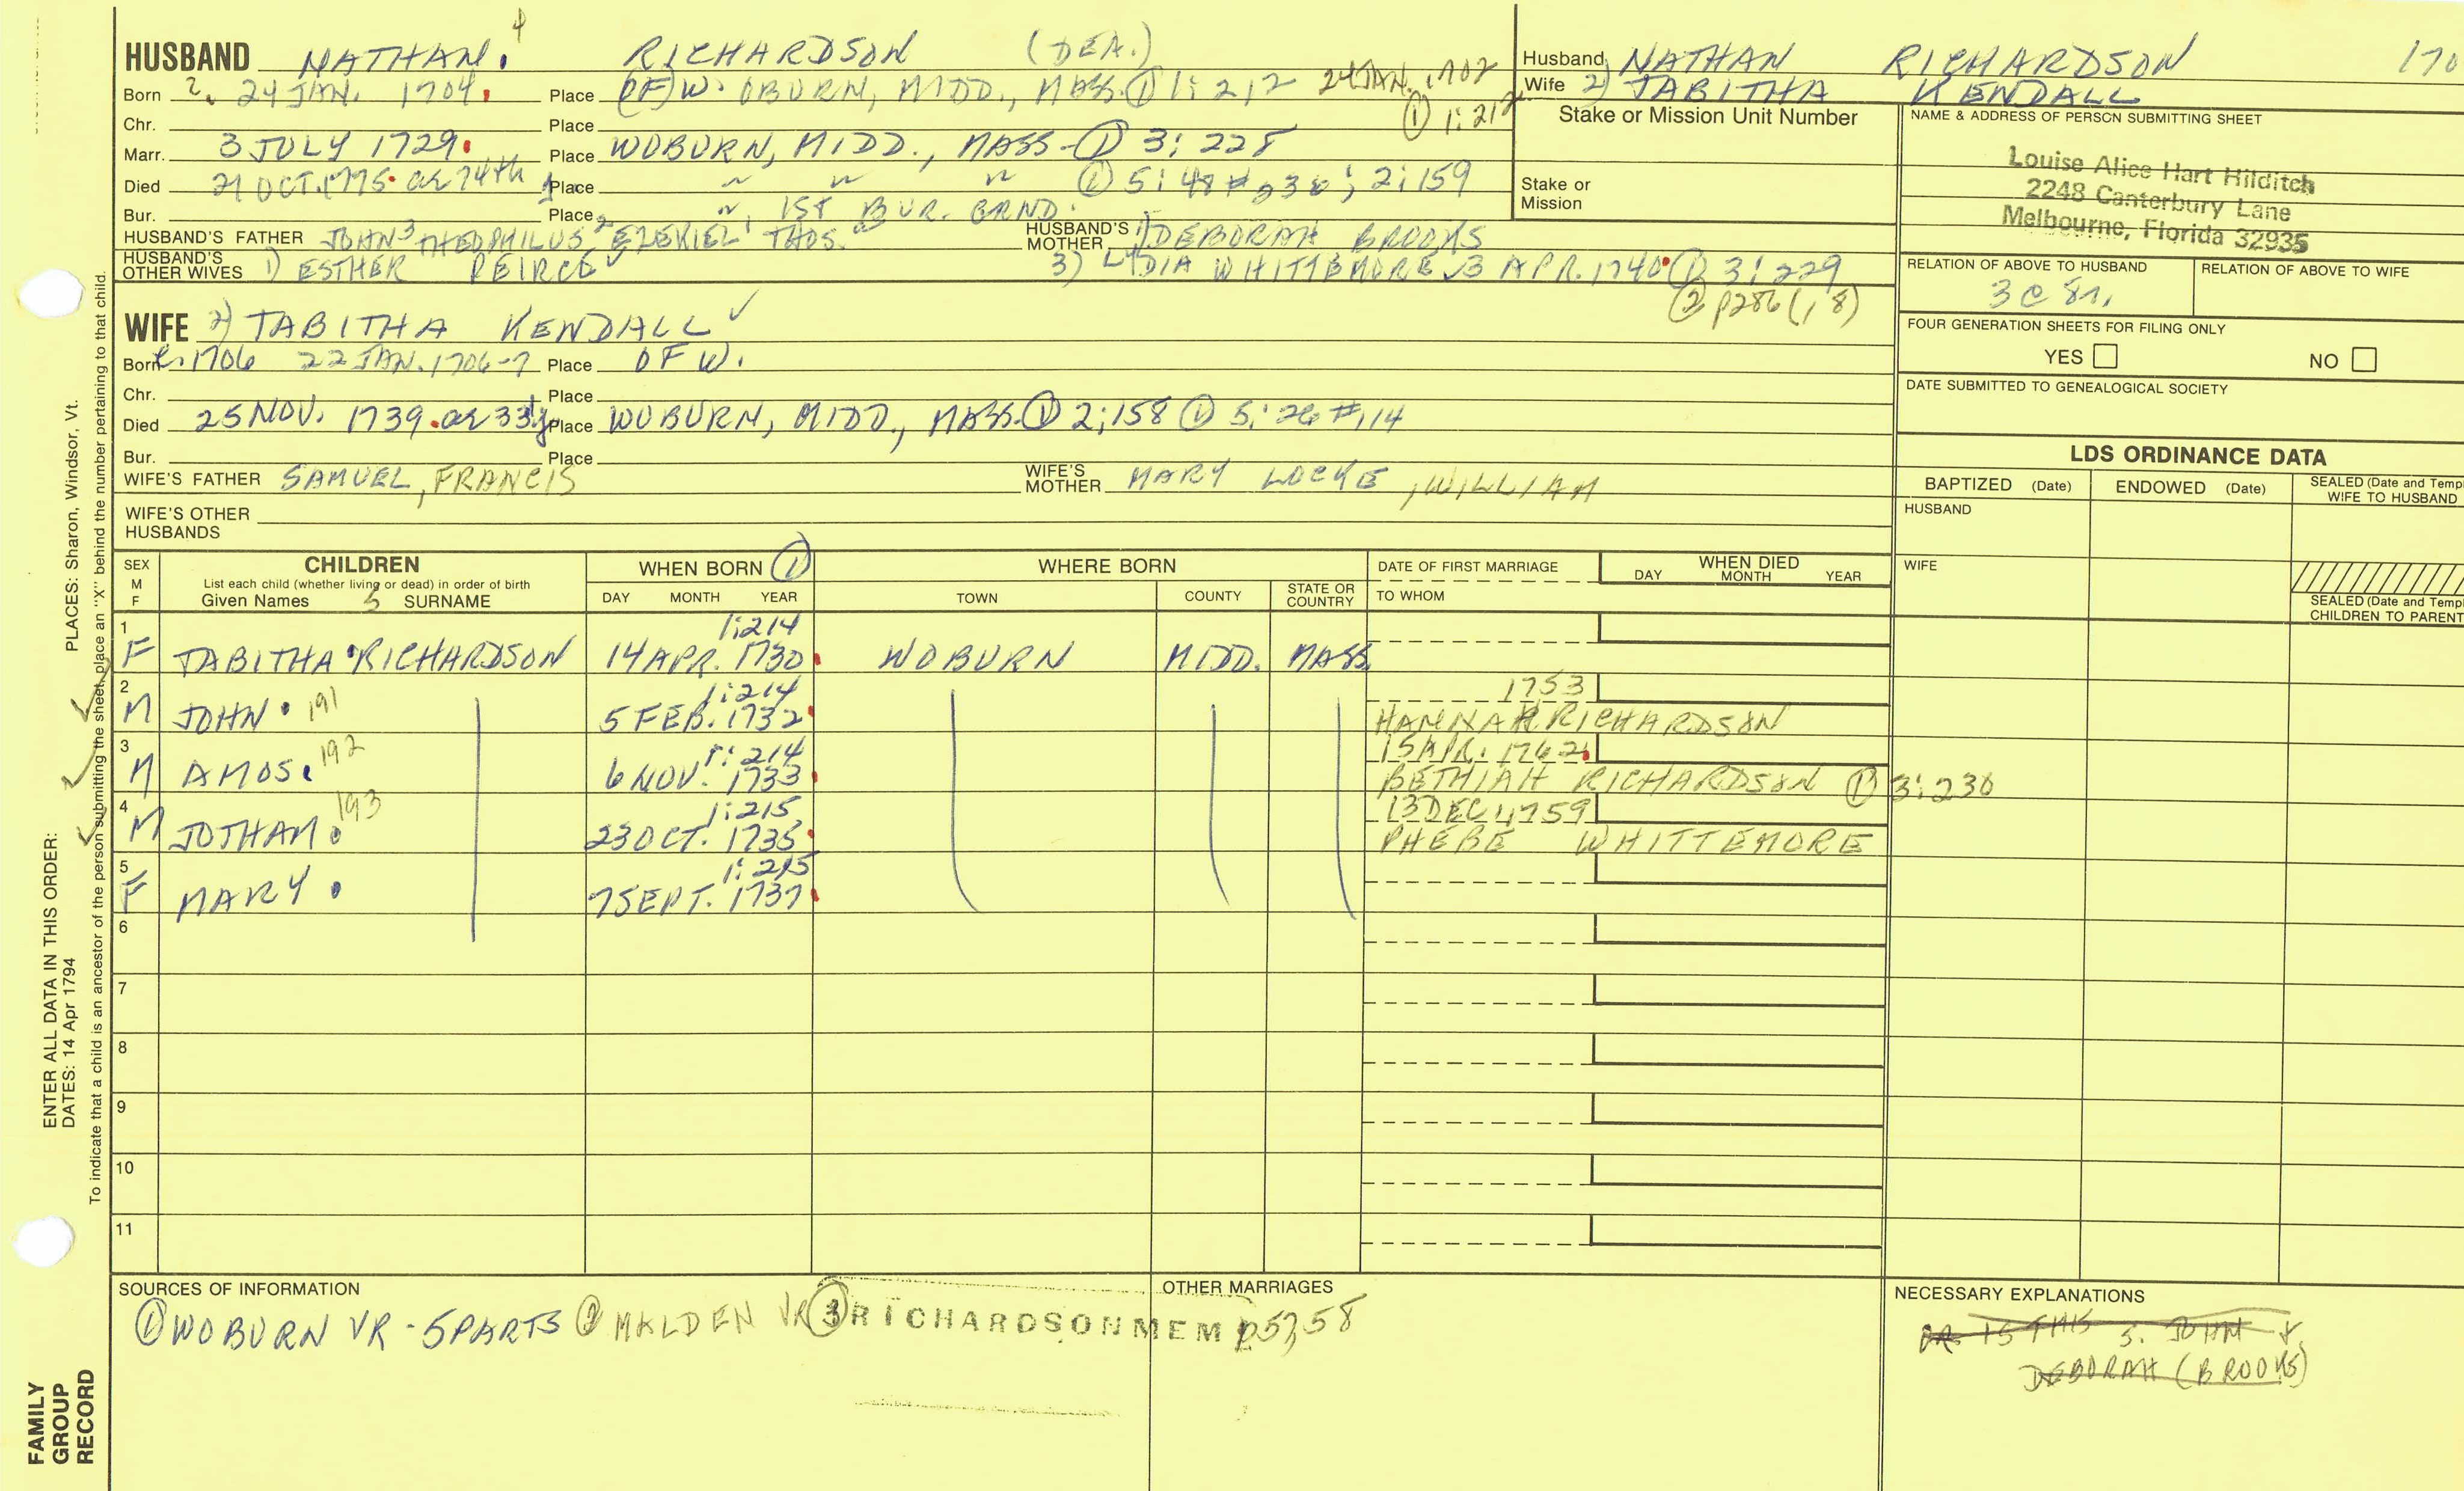 4
HUSBAND NATHAN. RICHARDSON (DEA.)
Born ?. 24 JAN. 1704. Place (OF) W. OBURN, MIDD., MASS. ① 1:212 24 JAN. 1702
① 1:212
Chr. Place
Marr. 3 JULY 1729. Place WOBURN, MIDD., MASS- ① 3:228
Died 21 OCT. 1775. ae 74th y. Place " " " ① 5:48 # 2; 159
Bur. Place " 1ST BUR. GRND.
HUSBAND'S FATHER JOHN 3 THEOPHILUS 2 EZEKIEL 1 THOS. HUSBAND'S MOTHER 1) DEBORAH BROOKS
HUSBAND'S OTHER WIVES 1) ESTHER PEIRCE 3) LYDIA WHITTEMORE √ 3 APR. 1740. ① 3:229
② p286 (,8)
WIFE 2) TABITHA KENDALL ✓
Born c. 1706 22 JAN. 1706-7 Place OF W.
Chr. Place
Died 25 NOV. 1739. ae 33 y Place WOBURN, MIDD., MASS. ① 2:158 ① 5:26 #114
Bur. Place
WIFE'S FATHER SAMUEL, FRANCIS WIFE'S MOTHER MARY LOCKE, WILLIAM
WIFE'S OTHER HUSBANDS
Husband NATHAN RICHARDSON 170
Wife 2) TABITHA KENDALL
Stake or Mission Unit Number
Stake or Mission
NAME & ADDRESS OF PERSON SUBMITTING SHEET
Louise Alice Hart Hilditch
2248 Canterbury Lane
Melbourne, Florida 32935
RELATION OF ABOVE TO HUSBAND RELATION OF ABOVE TO WIFE
3 C 8 r.
FOUR GENERATION SHEETS FOR FILING ONLY
YES NO
DATE SUBMITTED TO GENEALOGICAL SOCIETY
LDS ORDINANCE DATA
BAPTIZED (Date) ENDOWED (Date) SEALED (Date and Temp
WIFE TO HUSBAND
HUSBAND
WIFE
SEALED (Date and Temp
CHILDREN TO PARENT
SEX
M
F
CHILDREN
List each child (whether living or dead) in order of birth
Given Names 5 SURNAME
WHEN BORN ①
DAY MONTH YEAR
WHERE BORN
TOWN COUNTY STATE OR COUNTRY
DATE OF FIRST MARRIAGE
TO WHOM
WHEN DIED
DAY MONTH YEAR
1 1:214
F TABITHA RICHARDSON 14 APR. 1730. WOBURN MIDD. MASS.
2 1:214 1753
M JOHN 191 5 FEB. 1732. HANNAH RICHARDSON
3 1:214 15 APR. 1762.
M AMOS. 192 6 NOV. 1733. BETHIAH RICHARDSON ① 3:230
4 1:215 13 DEC 1759
M JOTHAM. 193 23 OCT. 1735. PHEBE WHITTEMORE
5 1:215
F MARY. 7 SEPT. 1737.
6
7
8
9
10
11
SOURCES OF INFORMATION
① WOBURN VR - 5 PARTS ② MALDEN VR ③ RICHARDSON MEM p57,58
OTHER MARRIAGES
NECESSARY EXPLANATIONS
OR IS THIS S. JOHN &
DEBORAH (BROOKS)
ENTER ALL DATA IN THIS ORDER:
DATES: 14 Apr 1794 PLACES: Sharon, Windsor, Vt.
To indicate that a child is an ancestor of the person submitting the sheet, place an "X" behind the number pertaining to that child.
FAMILY
GROUP
RECORD